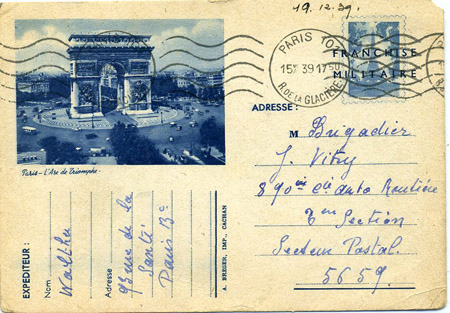 19.12.39.
PARIS 103
15 XII 39 17 50
R. DE LA GLACIERE
FRANCHISE
MILITAIRE
Paris - L'Arc de Triomphe.
ADRESSE :
M Brigadier
J. Vitry
890me Cie auto Routière
2em Section
Secteur Postal.
5659.
EXPEDITEUR :
Nom
Adresse
93 rue de la
Santé
Paris 13e
A. BREGER, IMP., CACHAN